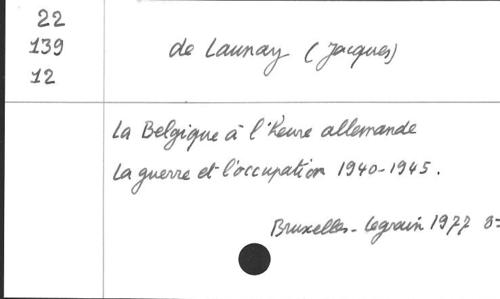 22
139
12
de Launay (Jacques)
La Belgique à l'heure allemande
La guerre et l'occupation 1940-1945.
Bruxelles - Legrain 1977